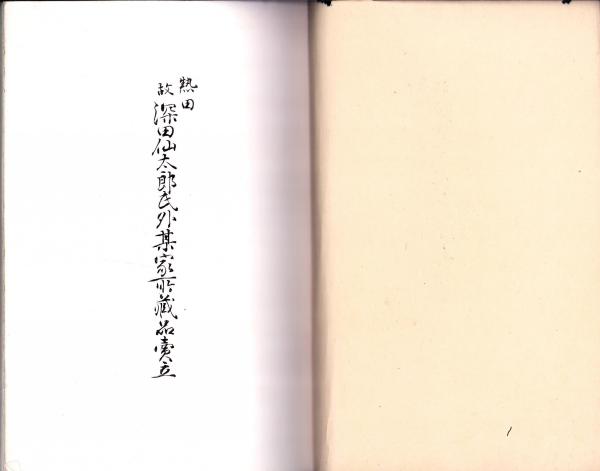 熱田
故深田仙太郎氏外某家所蔵品売立